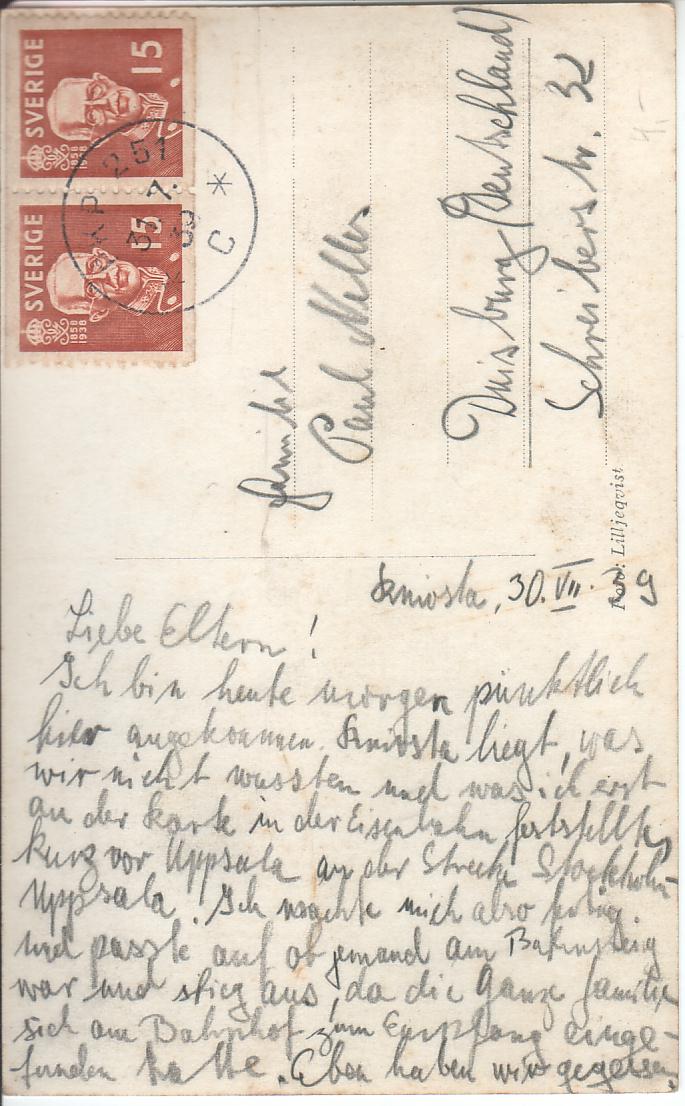 SVERIGE
15
1858
1938
SVERIGE
15
1858
1938
251
31 7.
39
C
Familie
Paul
Duisburg (Deutschland)
Schreiberstr. 32
4.-
Foto: Lilljeqvist
Knivsta, 30. VII. 39
Liebe Eltern!
Ich bin heute morgen pünktlich
hier angekommen. Knivsta liegt, was
wir nicht wussten und was ich erst
an der Karte in der Eisenbahn feststellte,
kurz vor Uppsala an der Strecke Stockholm-
Uppsala. Ich machte mich also fertig
und passte auf ob jemand am Bahnsteig
war und stieg aus, da die ganze Familie
sich am Bahnhof zum Empfang einge-
funden hatte. Eben haben wir gegessen,